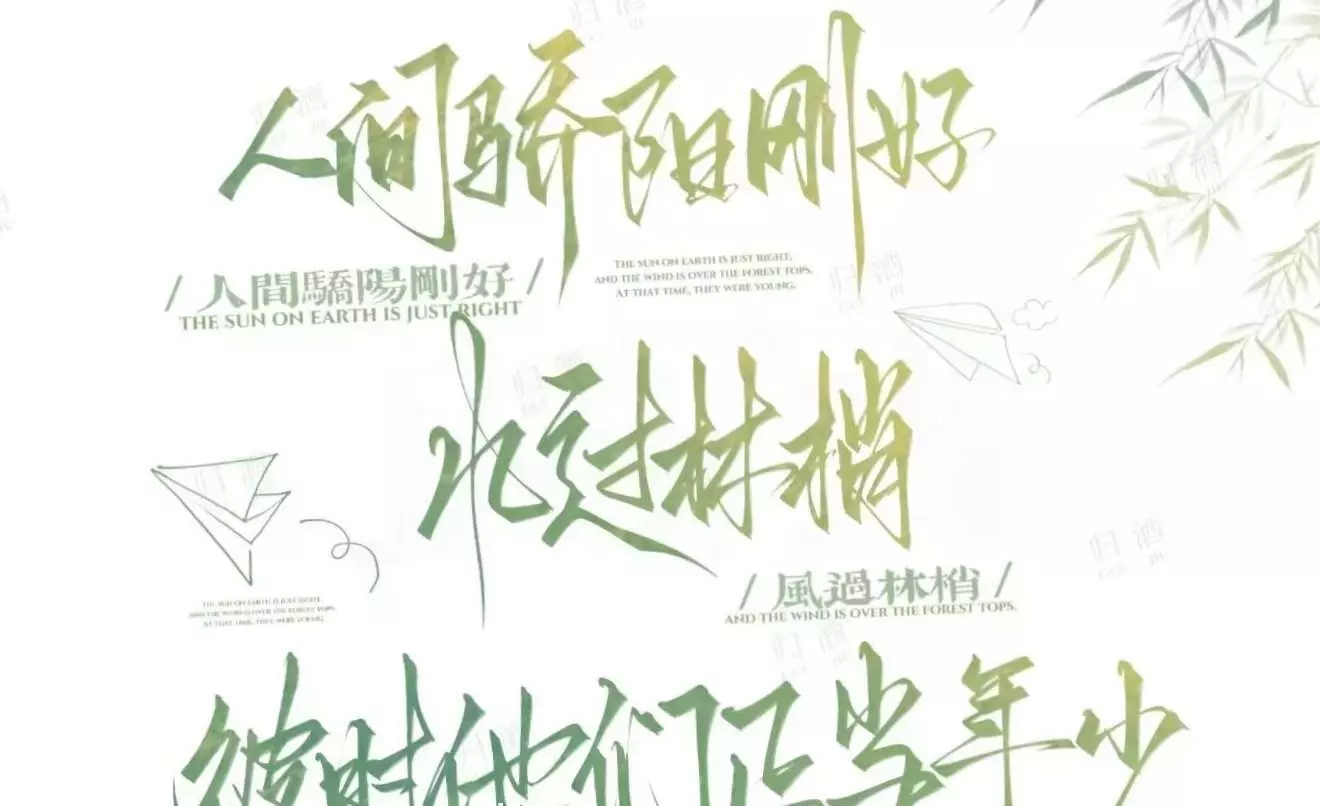 人间骄阳刚好
/ 人間驕陽剛好 /
THE SUN ON EARTH IS JUST RIGHT
THE SUN ON EARTH IS JUST RIGHT,
AND THE WIND IS OVER THE FOREST TOPS.
AT THAT TIME, THEY WERE YOUNG.
水过林梢
/ 風過林梢 /
AND THE WIND IS OVER THE FOREST TOPS.
THE SUN ON EARTH IS JUST RIGHT,
AND THE WIND IS OVER THE FOREST TOPS.
AT THAT TIME, THEY WERE YOUNG.
彼时他们正当年少